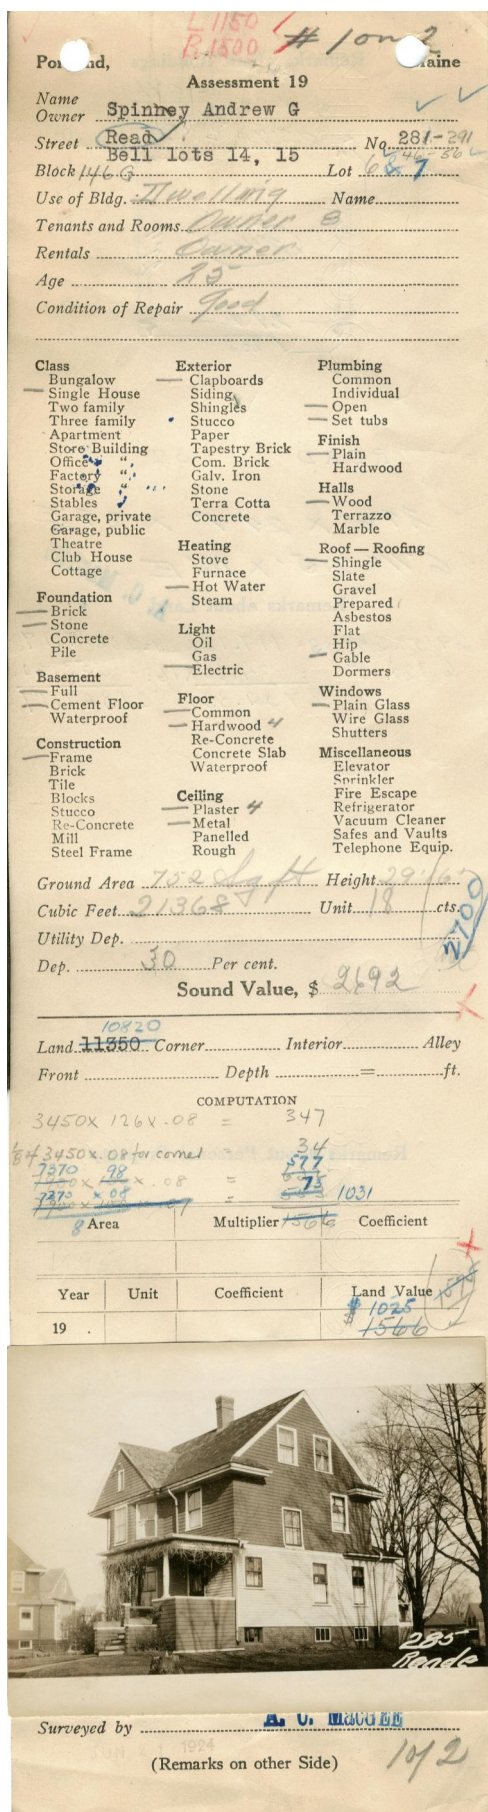 L 1150
B 1500
# 1 on 2
Portland, Maine
Assessment 19
Name
Owner Spinney Andrew G
Street Read No. 281-291
Bell lots 14, 15 46-56
Block 146 G Lot 6 & 7
Use of Bldg. Dwelling Name
Tenants and Rooms Owner 8
Rentals Owner
Age 25
Condition of Repair Good
Class
Bungalow
Single House
Two family
Three family
Apartment
Store Building
Office "
Factory "
Storage "
Stables
Garage, private
Garage, public
Theatre
Club House
Cottage
Foundation
Brick
Stone
Concrete
Pile
Basement
Full
Cement Floor
Waterproof
Construction
Frame
Brick
Tile
Blocks
Stucco
Re-Concrete
Mill
Steel Frame
Exterior
Clapboards
Siding
Shingles
Stucco
Paper
Tapestry Brick
Com. Brick
Galv. Iron
Stone
Terra Cotta
Concrete
Heating
Stove
Furnace
Hot Water
Steam
Light
Oil
Gas
Electric
Floor
Common
Hardwood 4
Re-Concrete
Concrete Slab
Waterproof
Ceiling
Plaster 4
Metal
Panelled
Rough
Plumbing
Common
Individual
Open
Set tubs
Finish
Plain
Hardwood
Halls
Wood
Terrazzo
Marble
Roof — Roofing
Shingle
Slate
Gravel
Prepared
Asbestos
Flat
Hip
Gable
Dormers
Windows
Plain Glass
Wire Glass
Shutters
Miscellaneous
Elevator
Sprinkler
Fire Escape
Refrigerator
Vacuum Cleaner
Safes and Vaults
Telephone Equip.
Ground Area 752 Sq ft Height
Cubic Feet 21368 Unit 18 cts.
Utility Dep.
2700
Dep. 30 Per cent.
Sound Value, $ 2692
10820
Land 11350 Corner Interior Alley
Front Depth = ft.
COMPUTATION
3450 x 126 x .08 = 347
1/8 of 3450 x .08 for corner 34
7370 98 577
x .08 =
7370 x .08 = 73 1031
8 Area Multiplier 1566 Coefficient
Year Unit Coefficient Land Value
$ 1025
19 . 1566
285
Reade
Surveyed by A. C. MacGEE
1924
(Remarks on other Side) 1 of 2